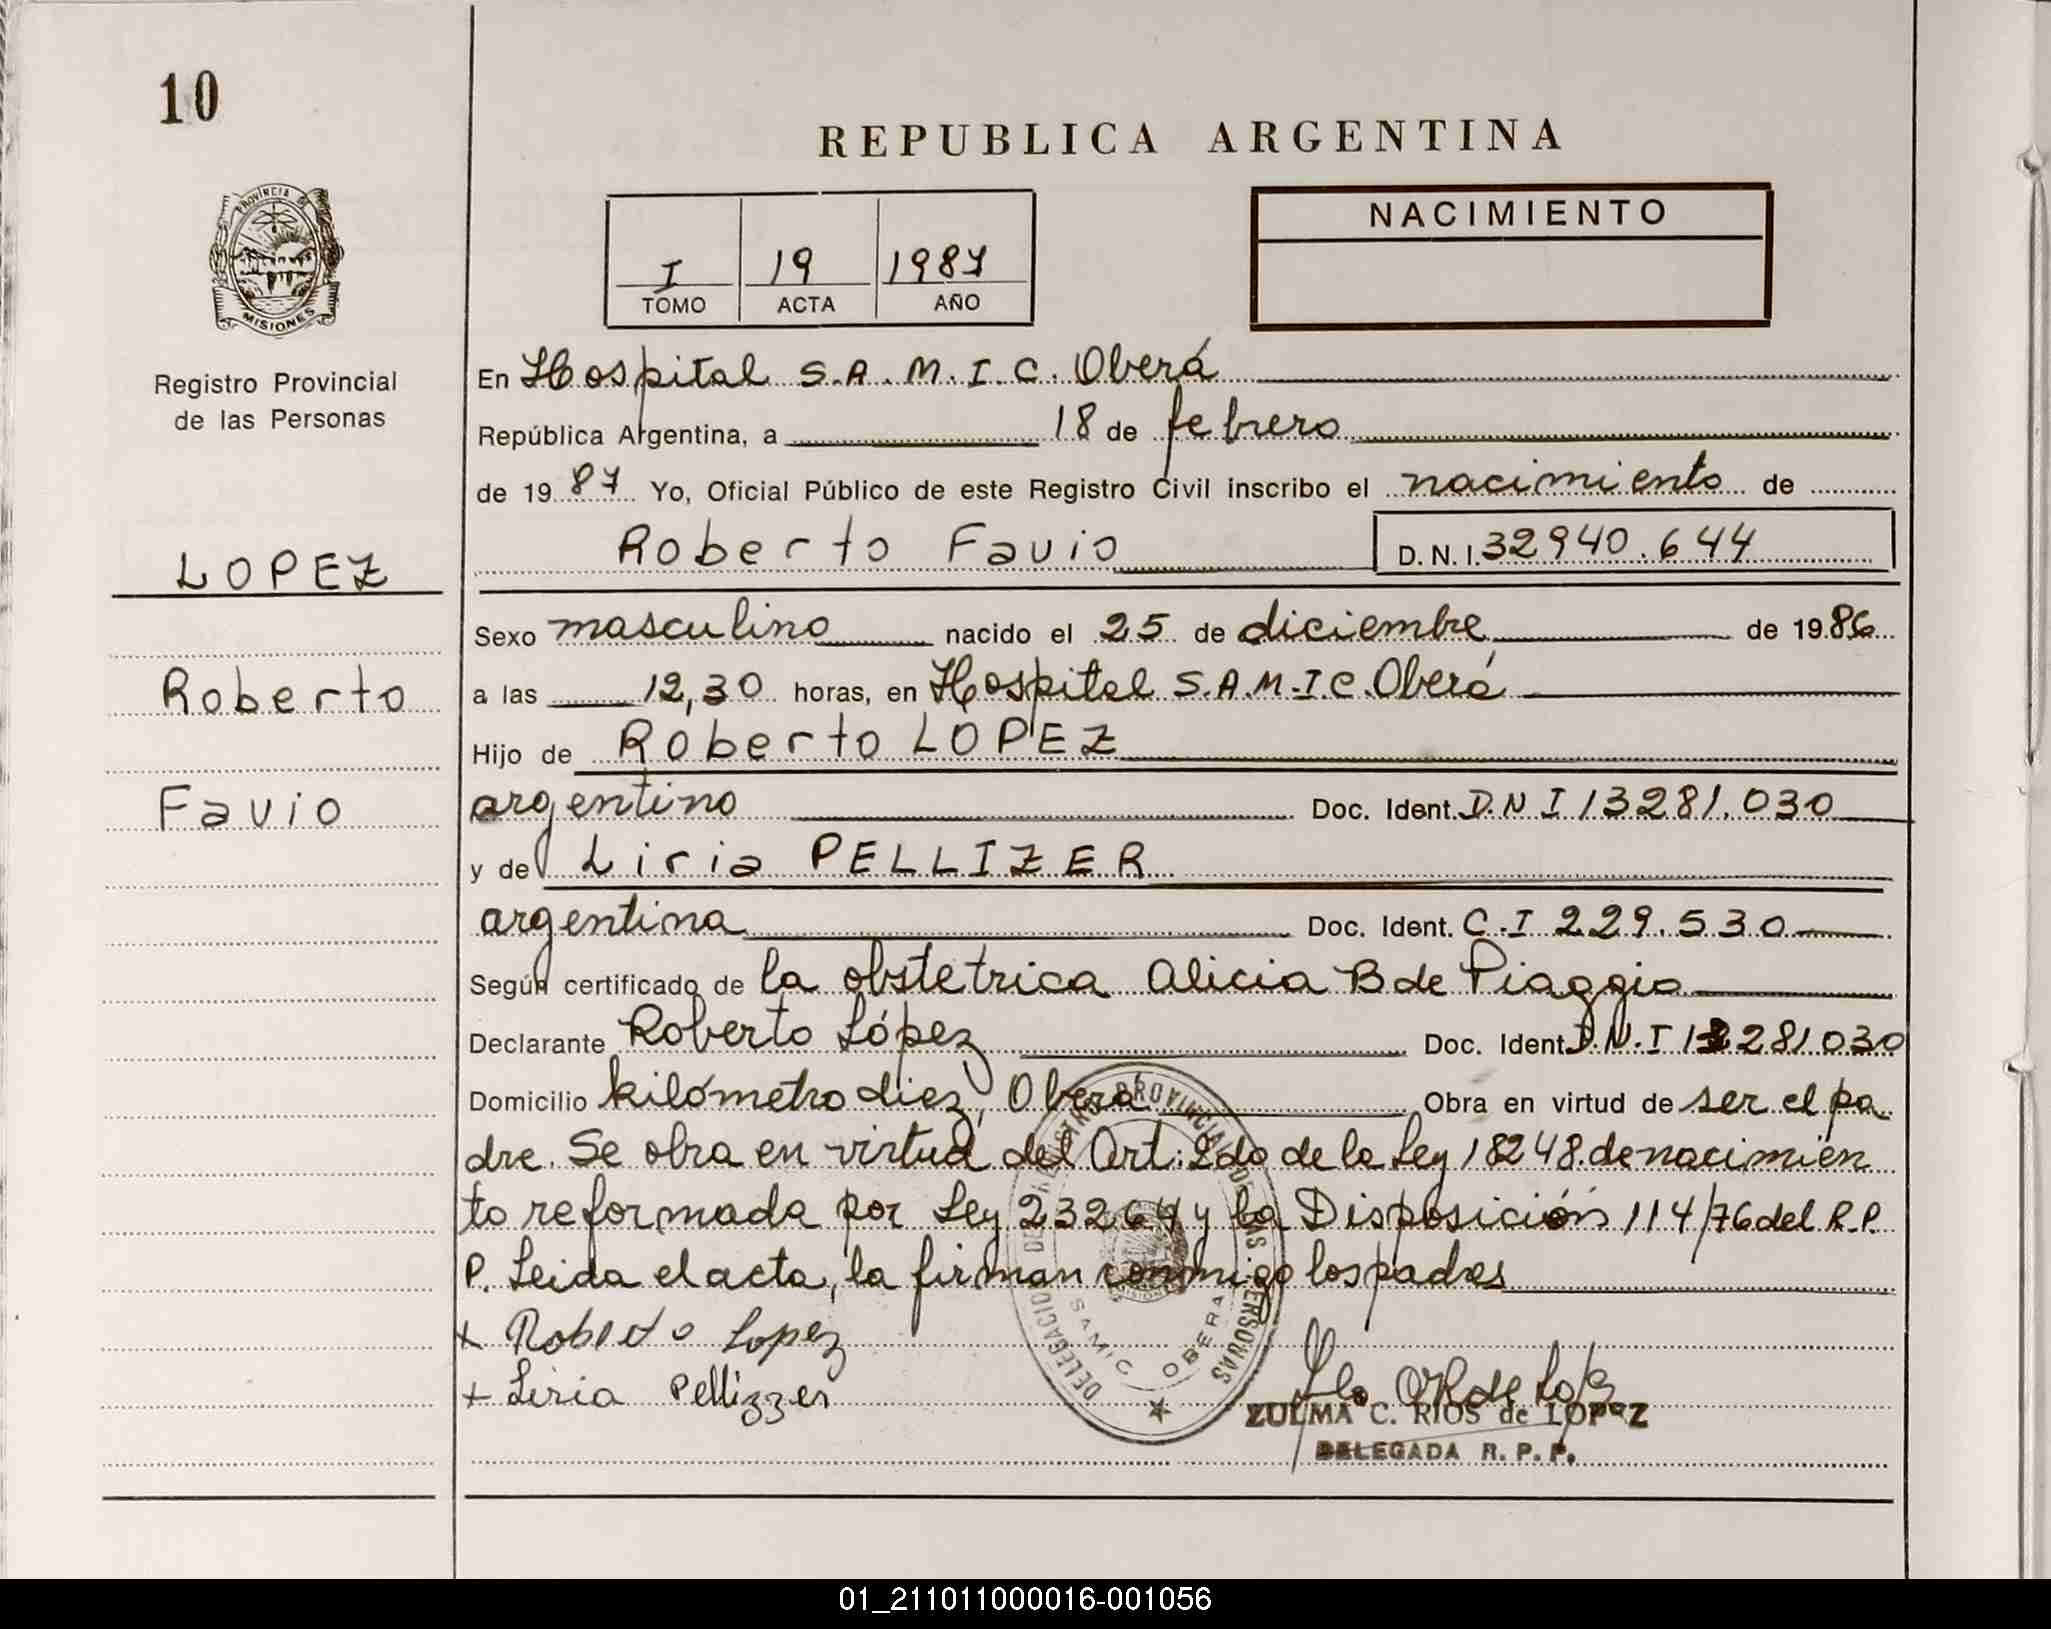 10
REPUBLICA ARGENTINA
PROVINCIA DE
MISIONES
NACIMIENTO
I 19 1987
TOMO ACTA AÑO
Registro Provincial
de las Personas
En Hospital S.A.M.I.C. Oberá
República Argentina, a 18 de febrero
de 1987 Yo, Oficial Público de este Registro Civil inscribo el nacimiento de
Roberto Favio D.N.I. 32940.644
LOPEZ
Roberto
Favio
Sexo masculino nacido el 25 de diciembre de 1986
a las 12,30 horas, en Hospital S.A.M.I.C. Oberá
Hijo de Roberto LOPEZ
argentino Doc. Ident. D.N.I 13281.030
y de Liria PELLIZER
argentina Doc. Ident. C.I 229.530
Según certificado de la obstetrica Alicia B de Piaggio
Declarante Roberto López Doc. Ident. D.N.I 13281030
Domicilio kilómetro diez, Oberá Obra en virtud de ser el pa
dre. Se obra en virtud del Art. 2do de la Ley 18248 de nacimien
to reformada por Ley 23264 y la Disposición 114/76 del R.P.
P. Leida el acta, la firman conmigo los padres
+ Roberto Lopez
+ Liria Pellizzer
DELEGACION DEL REGISTRO PROVINCIAL DE LAS PERSONAS
SAMIC OBERA
MISIONES
ZULMA C. RIOS de LOPEZ
DELEGADA R. P. P.
01_211011000016-001056